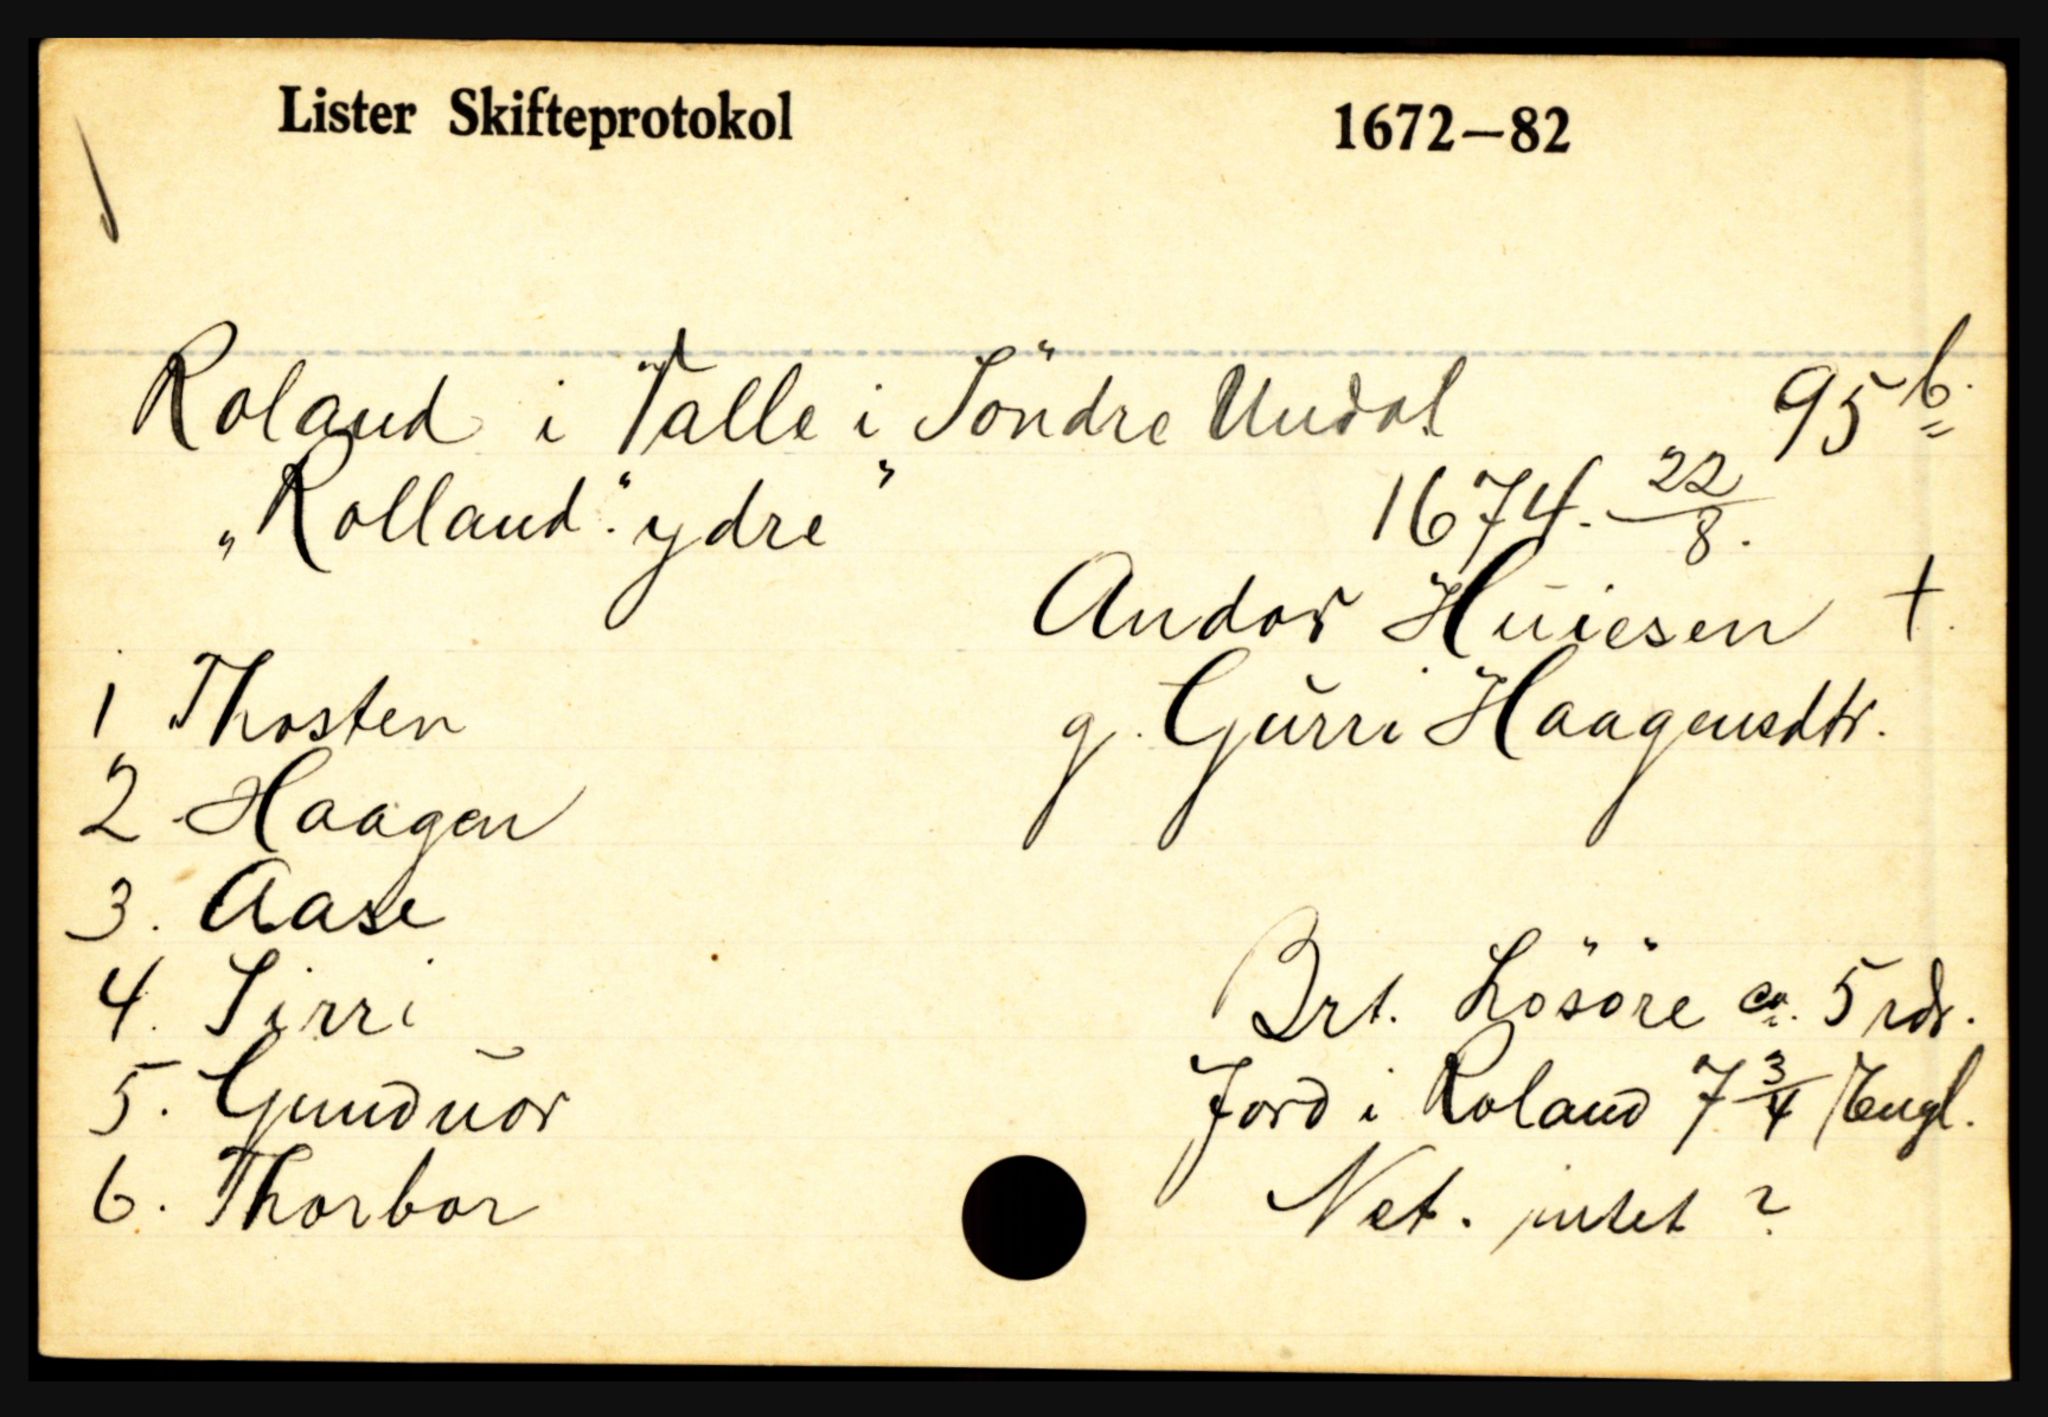 Lister Skifteprotokol 1672—82
Roland i Valle i Söndre Undal 95 b.
„Rolland" ydre" 1674. 22/8.
Andor Huiesen †.
1 Thosten g. Gurri Haagensdtr.
2 Haagen
3. Aase
4. Sirri Brt. Lösöre ca. 5 rdr.
5. Gunduor Jord i Roland 7 3/4 Engl.
6. Thorbor Net. intet ?